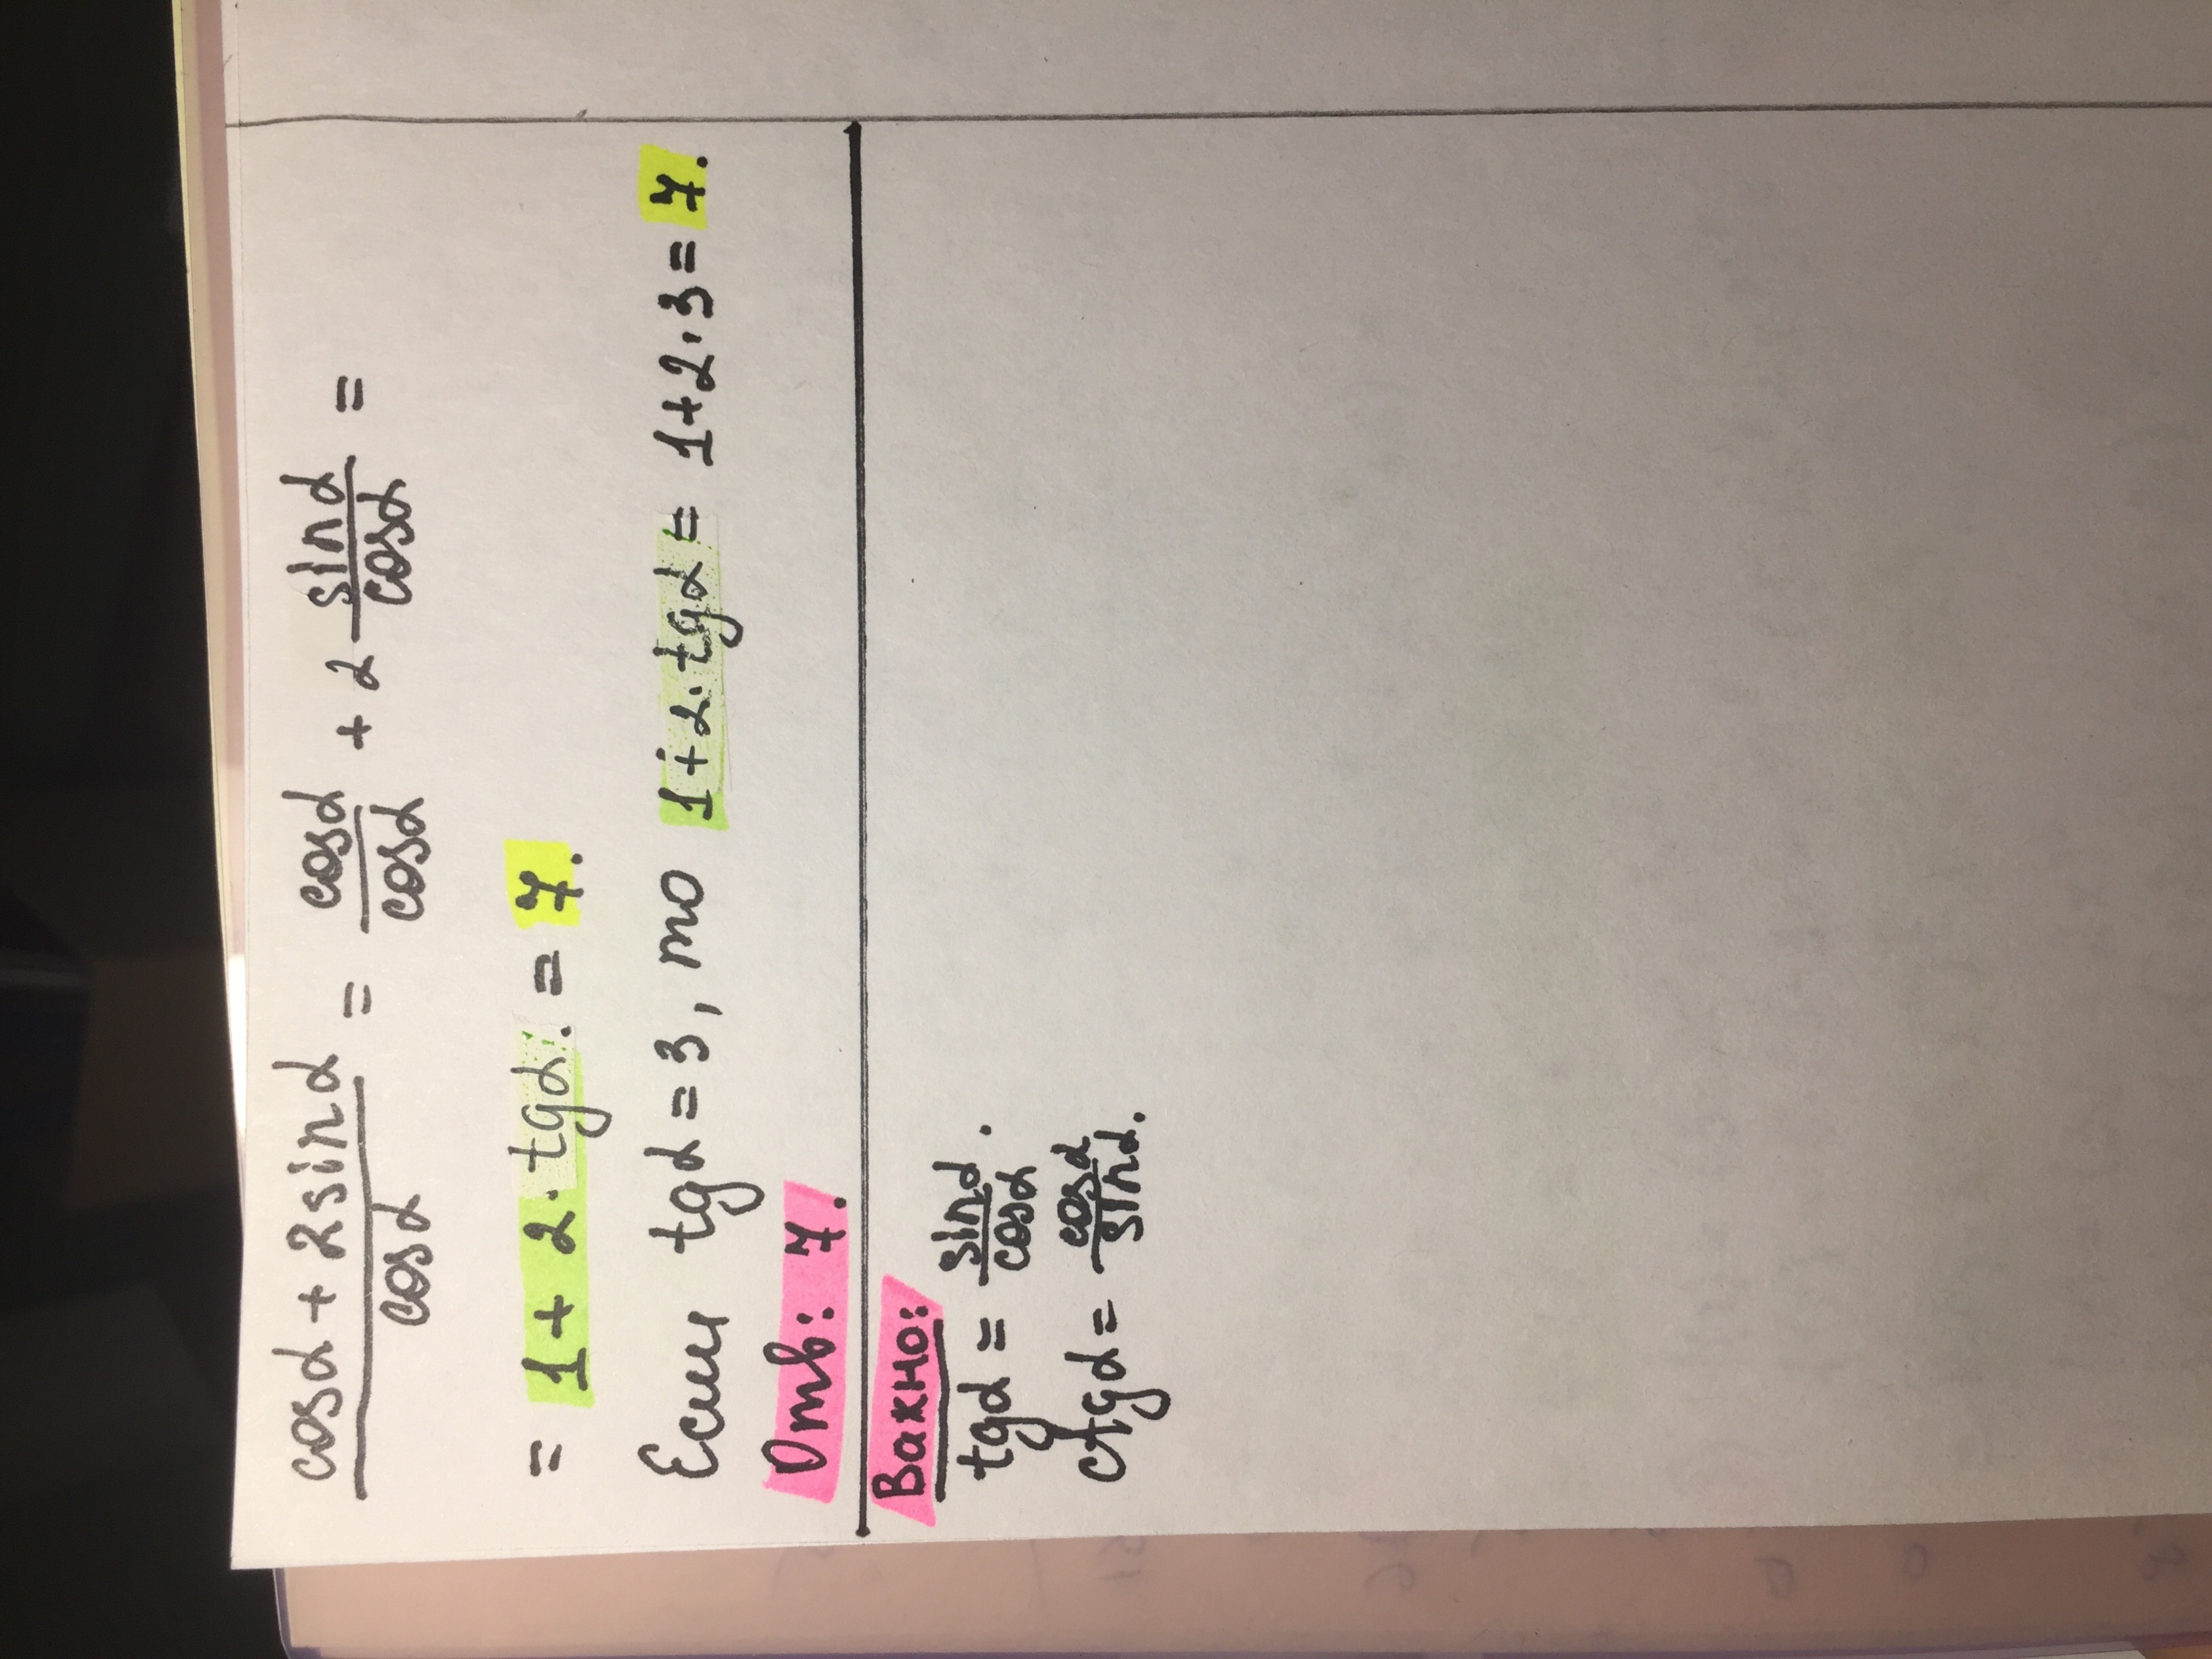 cosα + 2sinα / cosα = cosα / cosα + 2 sinα / cosα =
= 1 + 2 · tgα. = 7.
Если tgα = 3, то 1 + 2 · tgα = 1 + 2 · 3 = 7.
Отв: 7.
Важно:
tgα = sinα / cosα .
ctgα = cosα / sinα .